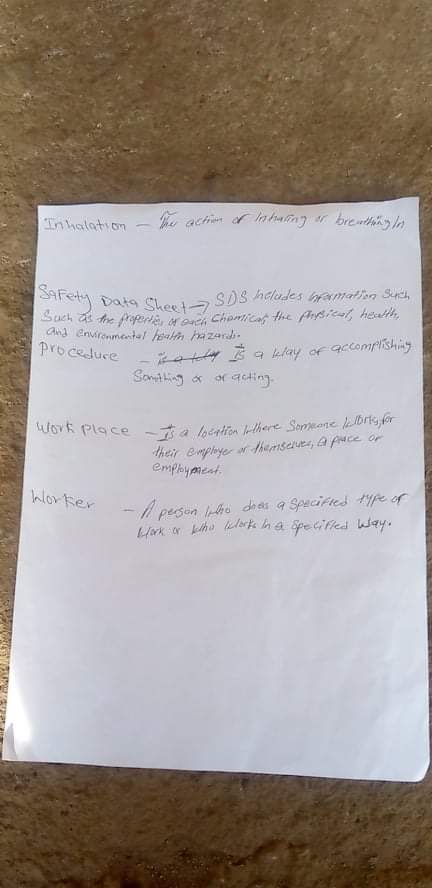 Inhalation - The action of Inhaling or breathing In
Safety Data Sheet → SDS Includes Information Such
Such as the properties of each Chemical, the Physical, health,
and environmental health hazards.
Procedure - is a way Is a way of accomplishing
Something or of acting.
Work place - Is a location Where Someone Works, for
their employer or themselves, a place of
employment.
Worker - A person Who does a Specified type of
Work or Who Works In a Specified Way.